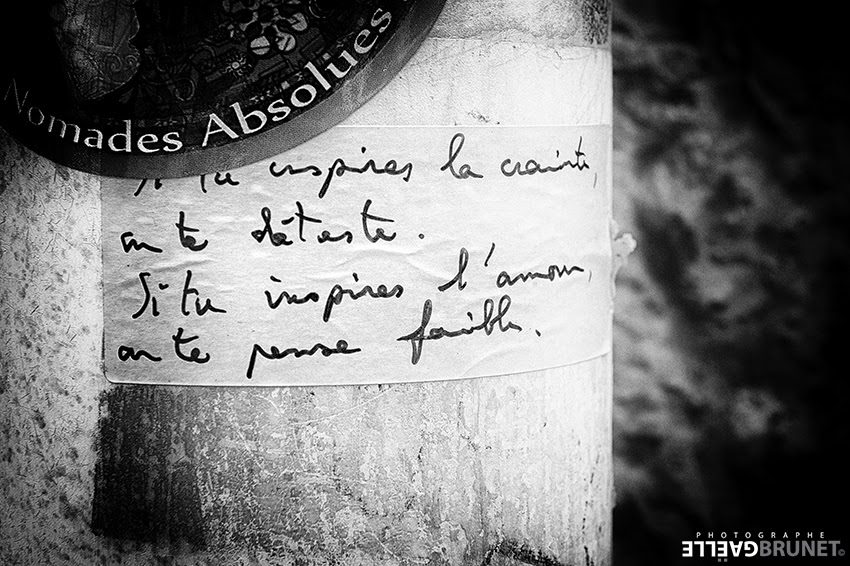 Nomades Absolues
Si tu inspires la crainte,
on te déteste.
Si tu inspires l'amour,
on te pense faible.
PHOTOGRAPHE
GAELLEBRUNET©